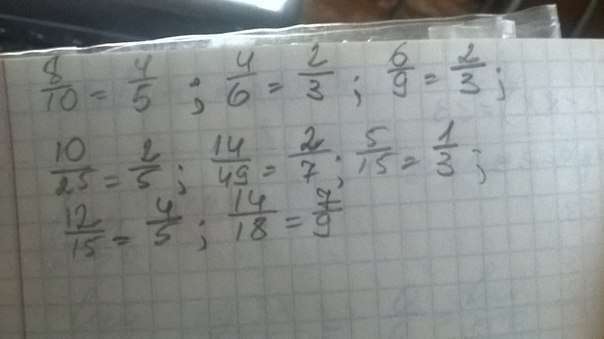 8/10 = 4/5 ; 4/6 = 2/3 ; 6/9 = 2/3 ;
10/25 = 2/5 ; 14/49 = 2/7 ; 5/15 = 1/3 ;
12/15 = 4/5 ; 14/18 = 7/9